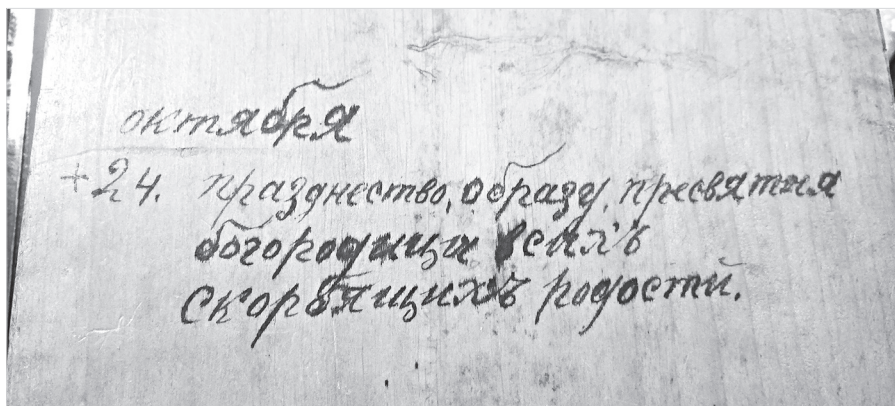 октября
+ 24. празднество, образу, пресвятыя
богородици всихъ
скорбящихъ родости.